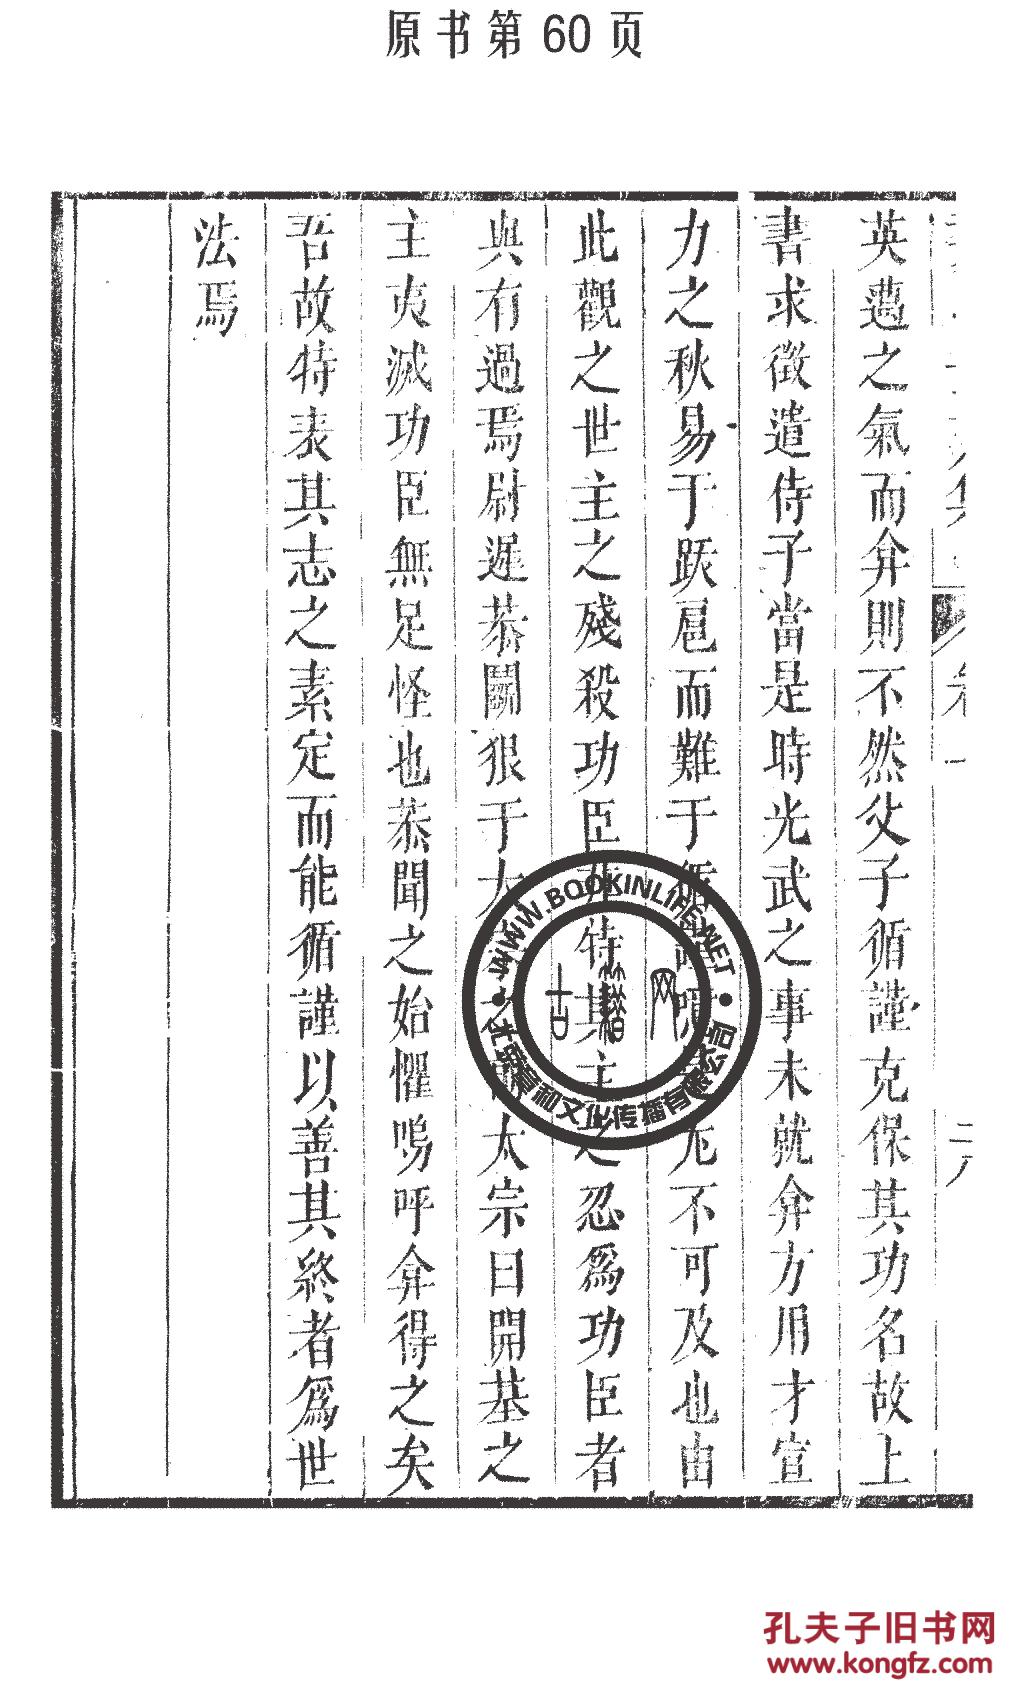 原书第 60 页
英邁之氣而弇則不然父子循謹克保其功名故上
書求徵遣侍子當是時光武之事未就弇方用才宣
力之秋易于跃扈而難于循尤不可及也由
此觀之世主之殘殺功臣特其主之忍爲功臣者
與有過焉尉遲恭鬭狠于大太宗曰開基之
主夷滅功臣無足怪也恭聞之始懼嗚呼弇得之矣
吾故特表其志之素定而能循謹以善其終者爲世
法焉
WWW.BOOKINLIFE.NET
古籍网
文化传播有限公司
孔夫子旧书网
www.kongfz.com